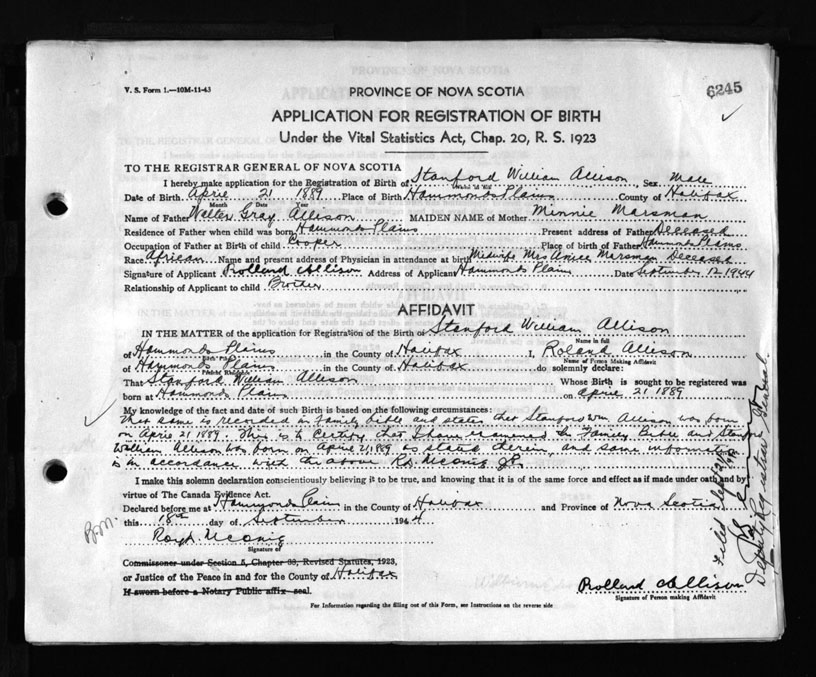 V. S. Form 1.—10M-11-43
PROVINCE OF NOVA SCOTIA
6245
APPLICATION FOR REGISTRATION OF BIRTH
Under the Vital Statistics Act, Chap. 20, R. S. 1923
TO THE REGISTRAR GENERAL OF NOVA SCOTIA
I hereby make application for the Registration of Birth of Stanford William Allison, Sex Male
Date of Birth April 21 1889 Place of Birth Hammonds Plains County of Halifax
Month Date Year
Name of Father Gray Allison MAIDEN NAME of Mother Minnie Marsman
Residence of Father when child was born Hammonds Plains Present address of Father Deceased
Occupation of Father at Birth of child Cooper Place of birth of Father Hammonds Plains
Race African Name and present address of Physician in attendance at birth Midwife Mrs Marsman Deceased
Signature of Applicant Rolland Allison Address of Applicant Hammonds Plains Date September 12 1944
Relationship of Applicant to child Brother
AFFIDAVIT
IN THE MATTER of the application for Registration of the Birth of Stanford William Allison
Name in full
of Hammonds Plains in the County of Halifax I, Roland Allison
Name of Person Making Affidavit
of Hammonds Plains in the County of Halifax do solemnly declare:
That Stanford William Allison Whose Birth is sought to be registered was
born at Hammonds Plains on April 21 1889
My knowledge of the fact and date of such Birth is based on the following circumstances:
that same is recorded in Family Bible and states that Stanford Wm Allison was born
on April 21 1889. This is to certify that I have examined the Family Bible and Stanford
William Allison was born on April 21, 1889 as stated therein, and same information
is in accordance with the above
I make this solemn declaration conscientiously believing it to be true, and knowing that it is of the same force and effect as if made under oath and by
virtue of The Canada Evidence Act.
Declared before me at Hammonds Plain in the County of Halifax and Province of Nova Scotia
this 18th day of September 1944
Signature of
Commissoner under Section 5, Chapter 38, Revised Statutes, 1923,
or Justice of the Peace in and for the County of Halifax
If sworn before a Notary Public affix seal.
Rolland Allison
Signature of Person making Affidavit
For Information regarding the filling out of this Form, see Instructions on the reverse side
Filed Sept
Deputy Registrar General.